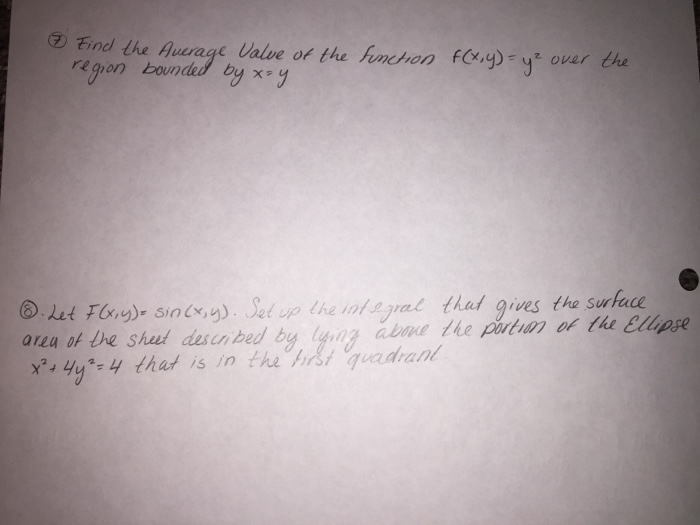 ⑦ Find the Average Value of the function f(x,y) = y² over the
region bounded by x=y
⑧. Let F(x,y)= sin(x,y). Set up the integral that gives the surface
area of the sheet described by lying above the portion of the Ellipse
x² + 4y² = 4 that is in the first quadrant